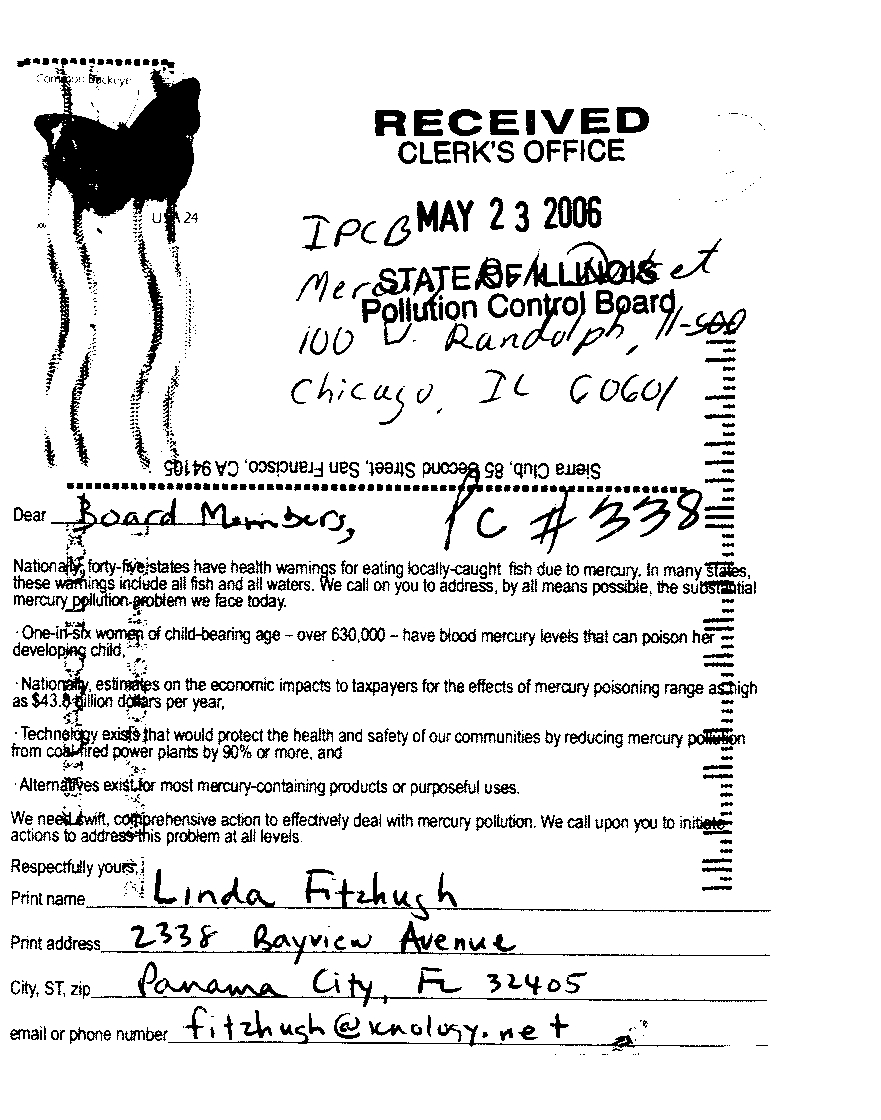 Common Buckeye
USA 24
RECEIVED
CLERK'S OFFICE
MAY 23 2006
STATE OF ILLINOIS
Pollution Control Board
IPCB
100 W. Randolph, 11-500
Chicago, IL 60601
Sierra Club, 85 Second Street, San Francisco, CA 94105
PC #338
Dear Board Members,
Nationally, forty-five states have health warnings for eating locally-caught fish due to mercury. In many states,
these warnings include all fish and all waters. We call on you to address, by all means possible, the substantial
mercury pollution problem we face today.
· One-in-six women of child-bearing age – over 630,000 – have blood mercury levels that can poison her
developing child,
· Nationally, estimates on the economic impacts to taxpayers for the effects of mercury poisoning range as high
as $43.8 billion dollars per year,
· Technology exists that would protect the health and safety of our communities by reducing mercury pollution
from coal-fired power plants by 90% or more, and
· Alternatives exist for most mercury-containing products or purposeful uses.
We need swift, comprehensive action to effectively deal with mercury pollution. We call upon you to initiate
actions to address this problem at all levels.
Respectfully yours,
Print name Linda Fitzhugh
Print address 2338 Bayview Avenue
City, ST, zip Panama City, FL 32405
email or phone number fitzhugh@knology.net